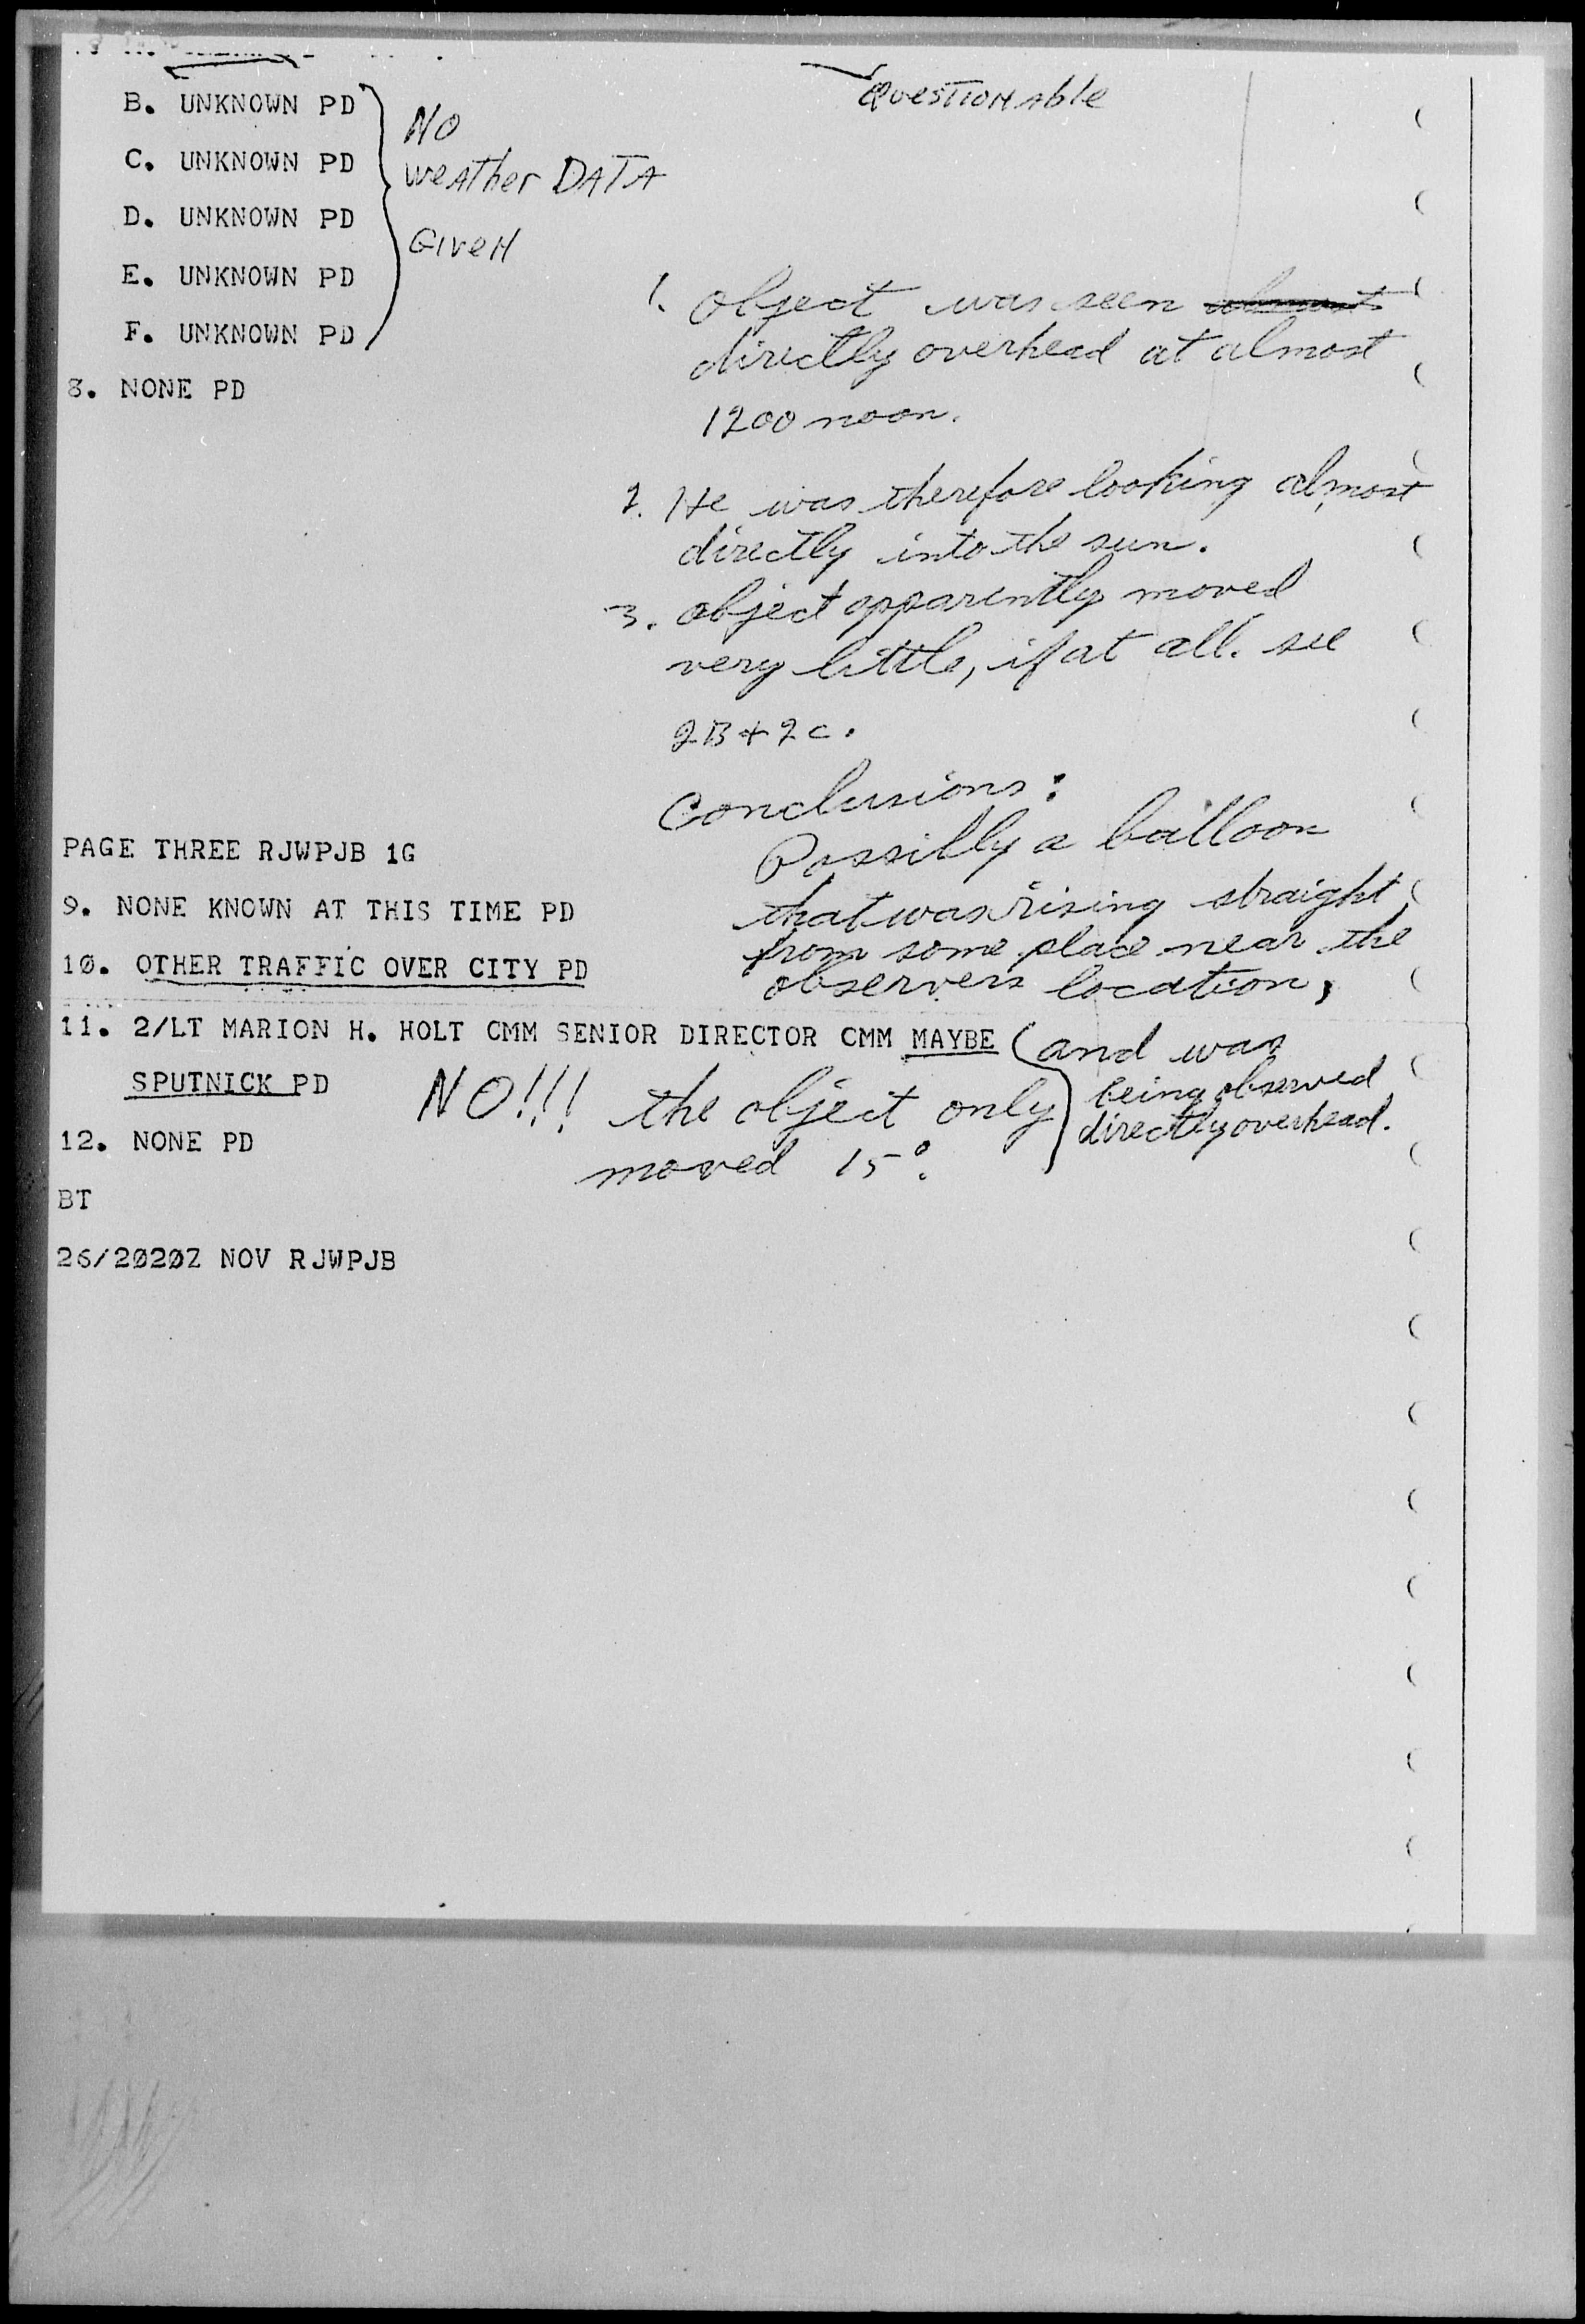 Questionable
B. UNKNOWN PD
C. UNKNOWN PD
D. UNKNOWN PD
E. UNKNOWN PD
F. UNKNOWN PD
No
weather DATA
Given
8. NONE PD
1. Object was seen almost
directly overhead at almost
1200 noon.
2. He was therefore looking almost
directly into the sun.
3. Object apparently moved
very little, if at all. see
2B + 2C.
Conclusions:
Possibly a balloon
that was rising straight
from some place near the
observers location,
and was
being observed
directly overhead.
PAGE THREE RJWPJB 1G
9. NONE KNOWN AT THIS TIME PD
10. OTHER TRAFFIC OVER CITY PD
11. 2/LT MARION H. HOLT CMM SENIOR DIRECTOR CMM MAYBE
SPUTNICK PD
NO!!! the object only
moved 15°.
12. NONE PD
BT
26/2020Z NOV RJWPJB